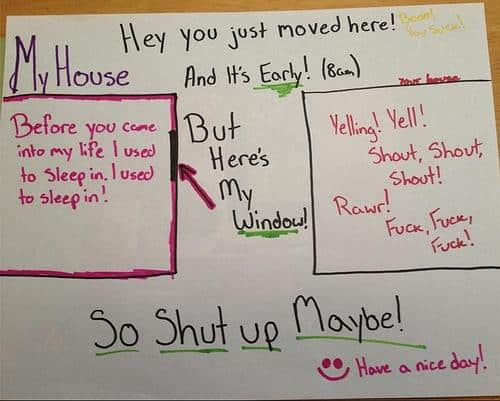 Hey you just moved here!
Boom!
You Suck!
My House
And It's Early! (8am)
Your house
Before you came
into my life I used
to sleep in. I used
to sleep in!
But
Here's
My
Window!
Yelling! Yell!
Shout, Shout,
Shout!
Rawr!
Fuck, Fuck,
Fuck!
So Shut up Maybe!
Have a nice day!